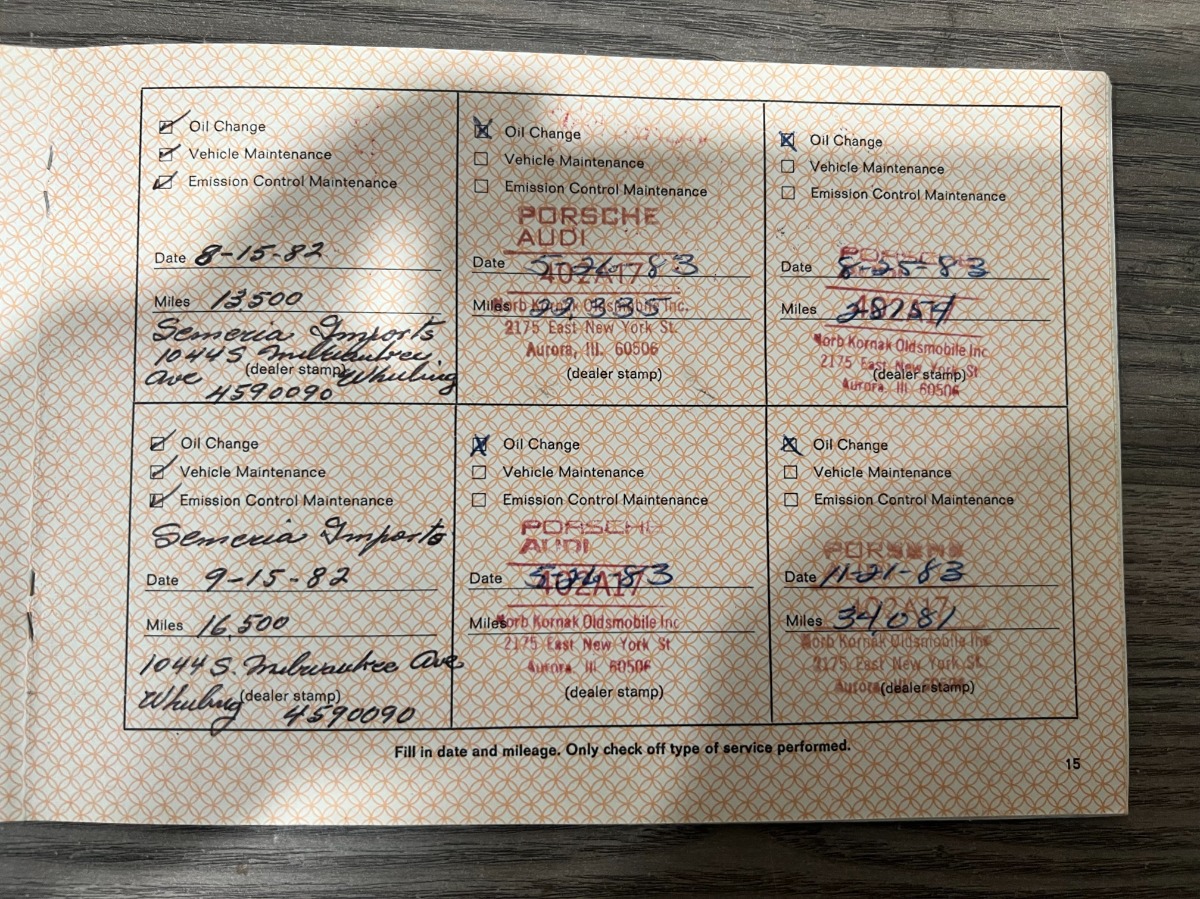 Oil Change
Vehicle Maintenance
Emission Control Maintenance
Date 8-15-82
Miles 13500
Semeria Imports
1044 S Milwaukee
(dealer stamp)
Ave Wheeling
4590090
Oil Change
Vehicle Maintenance
Emission Control Maintenance
PORSCHE
AUDI
Date 5-26-83
402A17
Miles 22,335
Norb Kornak Oldsmobile Inc.
2175 East New York St.
Aurora, Ill. 60506
(dealer stamp)
Oil Change
Vehicle Maintenance
Emission Control Maintenance
PORSCHE
Date 8-25-83
Miles
Norb Kornak Oldsmobile Inc
2175 East New York St
(dealer stamp)
Aurora, Ill 60506
Oil Change
Vehicle Maintenance
Emission Control Maintenance
Semeria Imports
Date 9-15-82
Miles 16,500
1044 S. Milwaukee Ave
Wheeling (dealer stamp)
4590090
Oil Change
Vehicle Maintenance
Emission Control Maintenance
PORSCHE
AUDI
Date 5-26-83
402A17
Miles
Norb Kornak Oldsmobile Inc
2175 East New York St
Aurora, Ill 60506
(dealer stamp)
Oil Change
Vehicle Maintenance
Emission Control Maintenance
PORSCHE
Date 11-21-83
Miles 34,081
Norb Kornak Oldsmobile Inc
2175 East New York St.
Aurora (dealer stamp)
Fill in date and mileage. Only check off type of service performed.
15